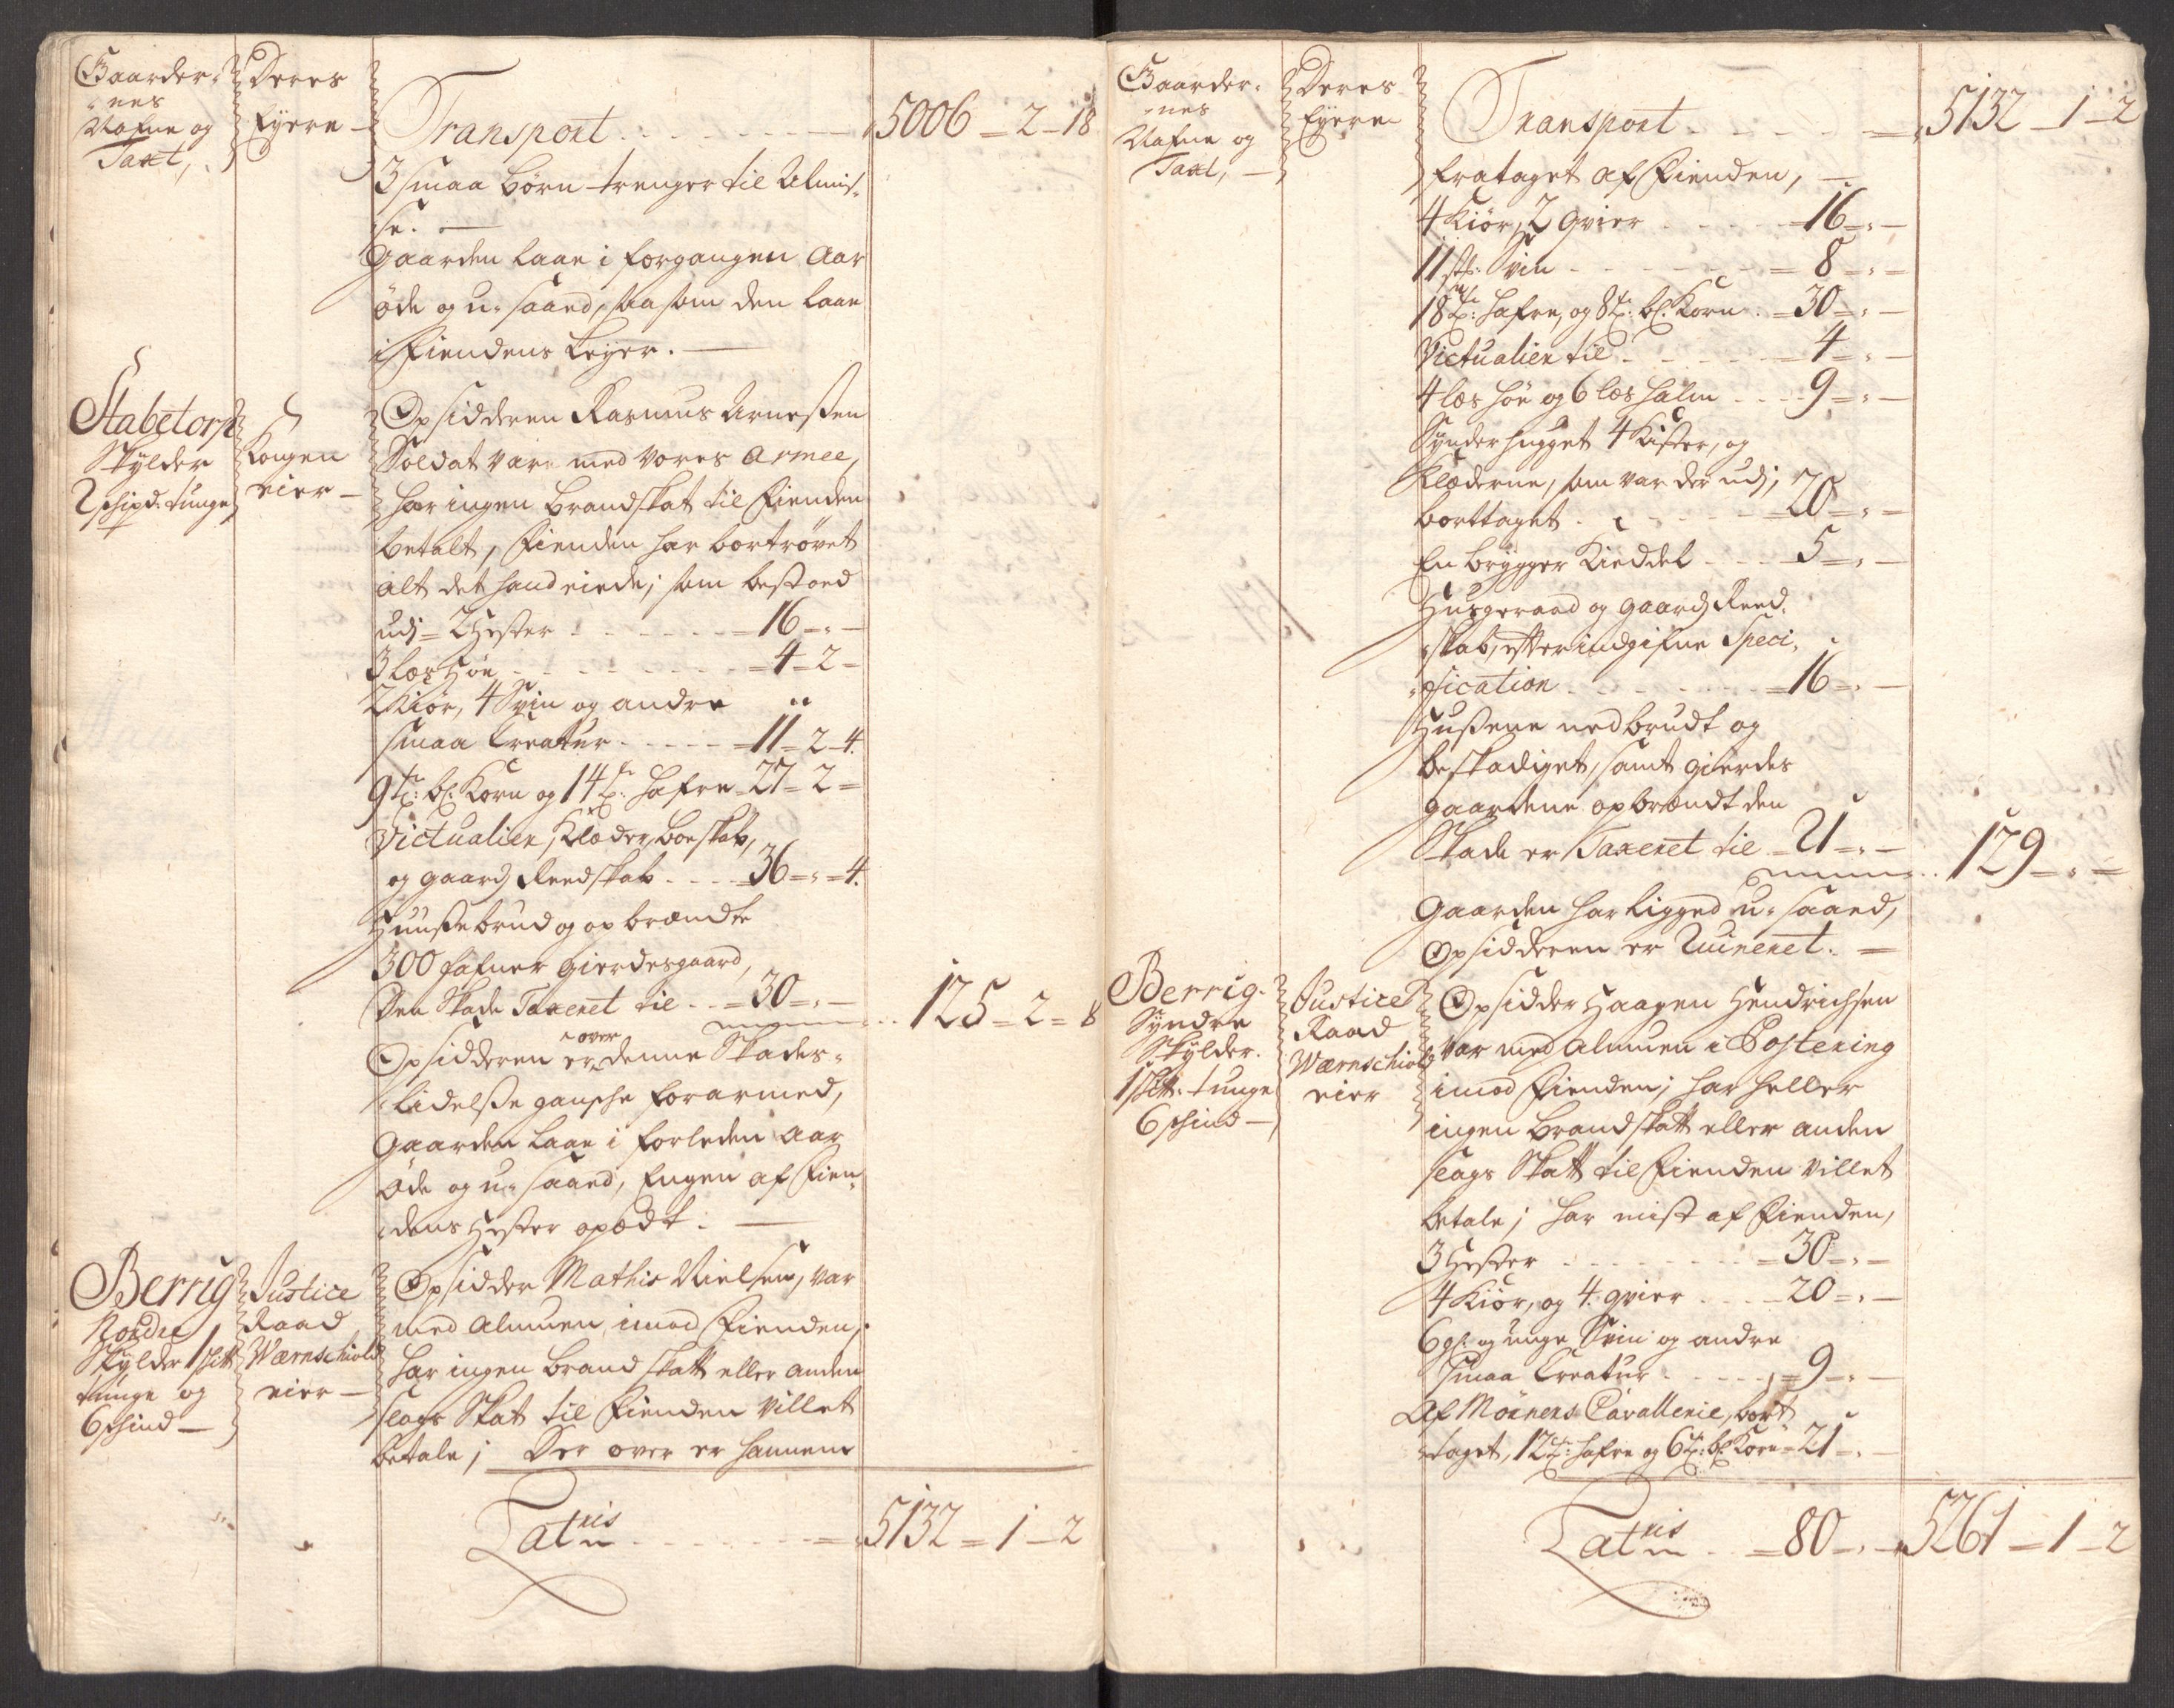 Gaarder-
nes
Nafne og
Taxt,
Deres
Eyere
Transport 5006 - 2 - 18
3 smaa børn trenger til Almis-
se.
Gaarden laae i forgangen Aar
øde og u-saaed, saasom den laae
i Fiendens Leyer.
Stabetorp
Skylder
2 schipd: tunge
Kongen
eier
Opsidderen Rasmus Arnessen
Soldat var med vores Armee,
har ingen Brandskat til Fienden
betalt, Fienden har bortrøvet
alt det hand eiede, som bestoed
udj 2 Hester 16 - „ -
3 læs Høe 4 - 2 -
2 Kiør, 4 Svin og andre
smaa Creatur 11 - 2 - 4.
9 tr: bl: Korn og 14 tr: Hafre 27 - 2 -
Victualier, Klæder, boeskab,
og gaards Reedskab 36 - „ - 4.
Huusse brud og opbrændte
300 fafner gierdesgaard,
Den Skade Taxeret til 30 - „ -
125 - 2 - 8
Opsidderen er over denne Skades-
lidelsse ganske forarmed,
Gaarden laae i forleden Aar
øde og u-saaed, Engen af Fien-
dens Hester opædt.
Berrig
Nordre
Skylder 1 skt
tunge og
6 schind
Justice
Raad
Wærnschiold
eier
Opsidder Mathis Nielsen, var
med Almuen imod Fienden,
har ingen brandskatt eller anden
slags Skat til Fienden villet
betale; Der over er hannem
Lateris 5132 - 1 - 2
Gaarder-
nes
Nafne og
Taxt,
Deres
Eyere
Transport 5132 - 1 - 2
frataget af Fienden,
4 Kiør, 2 qvier 16 - „ -
11 st: Svin 8 - „ -
18 tr: Hafre, og 8 tr: bl: Korn 30 - „ -
Victualier til 4 - „ -
4 læs høe og 6 læs halm 9 - „ -
Sønderhugget 4 Kister, og
Klæderne, som var der udj,
borttaget 20 - „ -
En brygger Kieddel 5 - „ -
Husgeraad og gaards Reed-
skab, efter indgifne Speci-
fication 16 - „ -
Hussene nedbrudt og
beskadiget, samt gierdes
gaardene opbrændt den
Skade er Taxeret til 21 - „ -
129 - „ -
Gaarden har ligged u-saaed,
Opsidderen er Ruineret.
Berrig
Syndre
Skylder
1 skt: tunge
6 schind
Justice
Raad
Wærnschiold
eier
Opsidder Haagen Hendrichsen
var med Almuen i Postering
imod Fienden; har heller
ingen Brandskatt eller anden
slags Skatt til Fienden villet
betale; har mist af Fienden,
3 Hester 30 - „ -
4 Kiør, og 4 qvier 20 - „ -
6 gl: og unge Svin og andre
smaa Creatur 9 - „ -
Af Mörners Cavallerie, bort
taget, 12 tr: hafre og 6 tr: bl: Korn 21 - „ -
Lateris 80 - „ - 5261 - 1 - 2